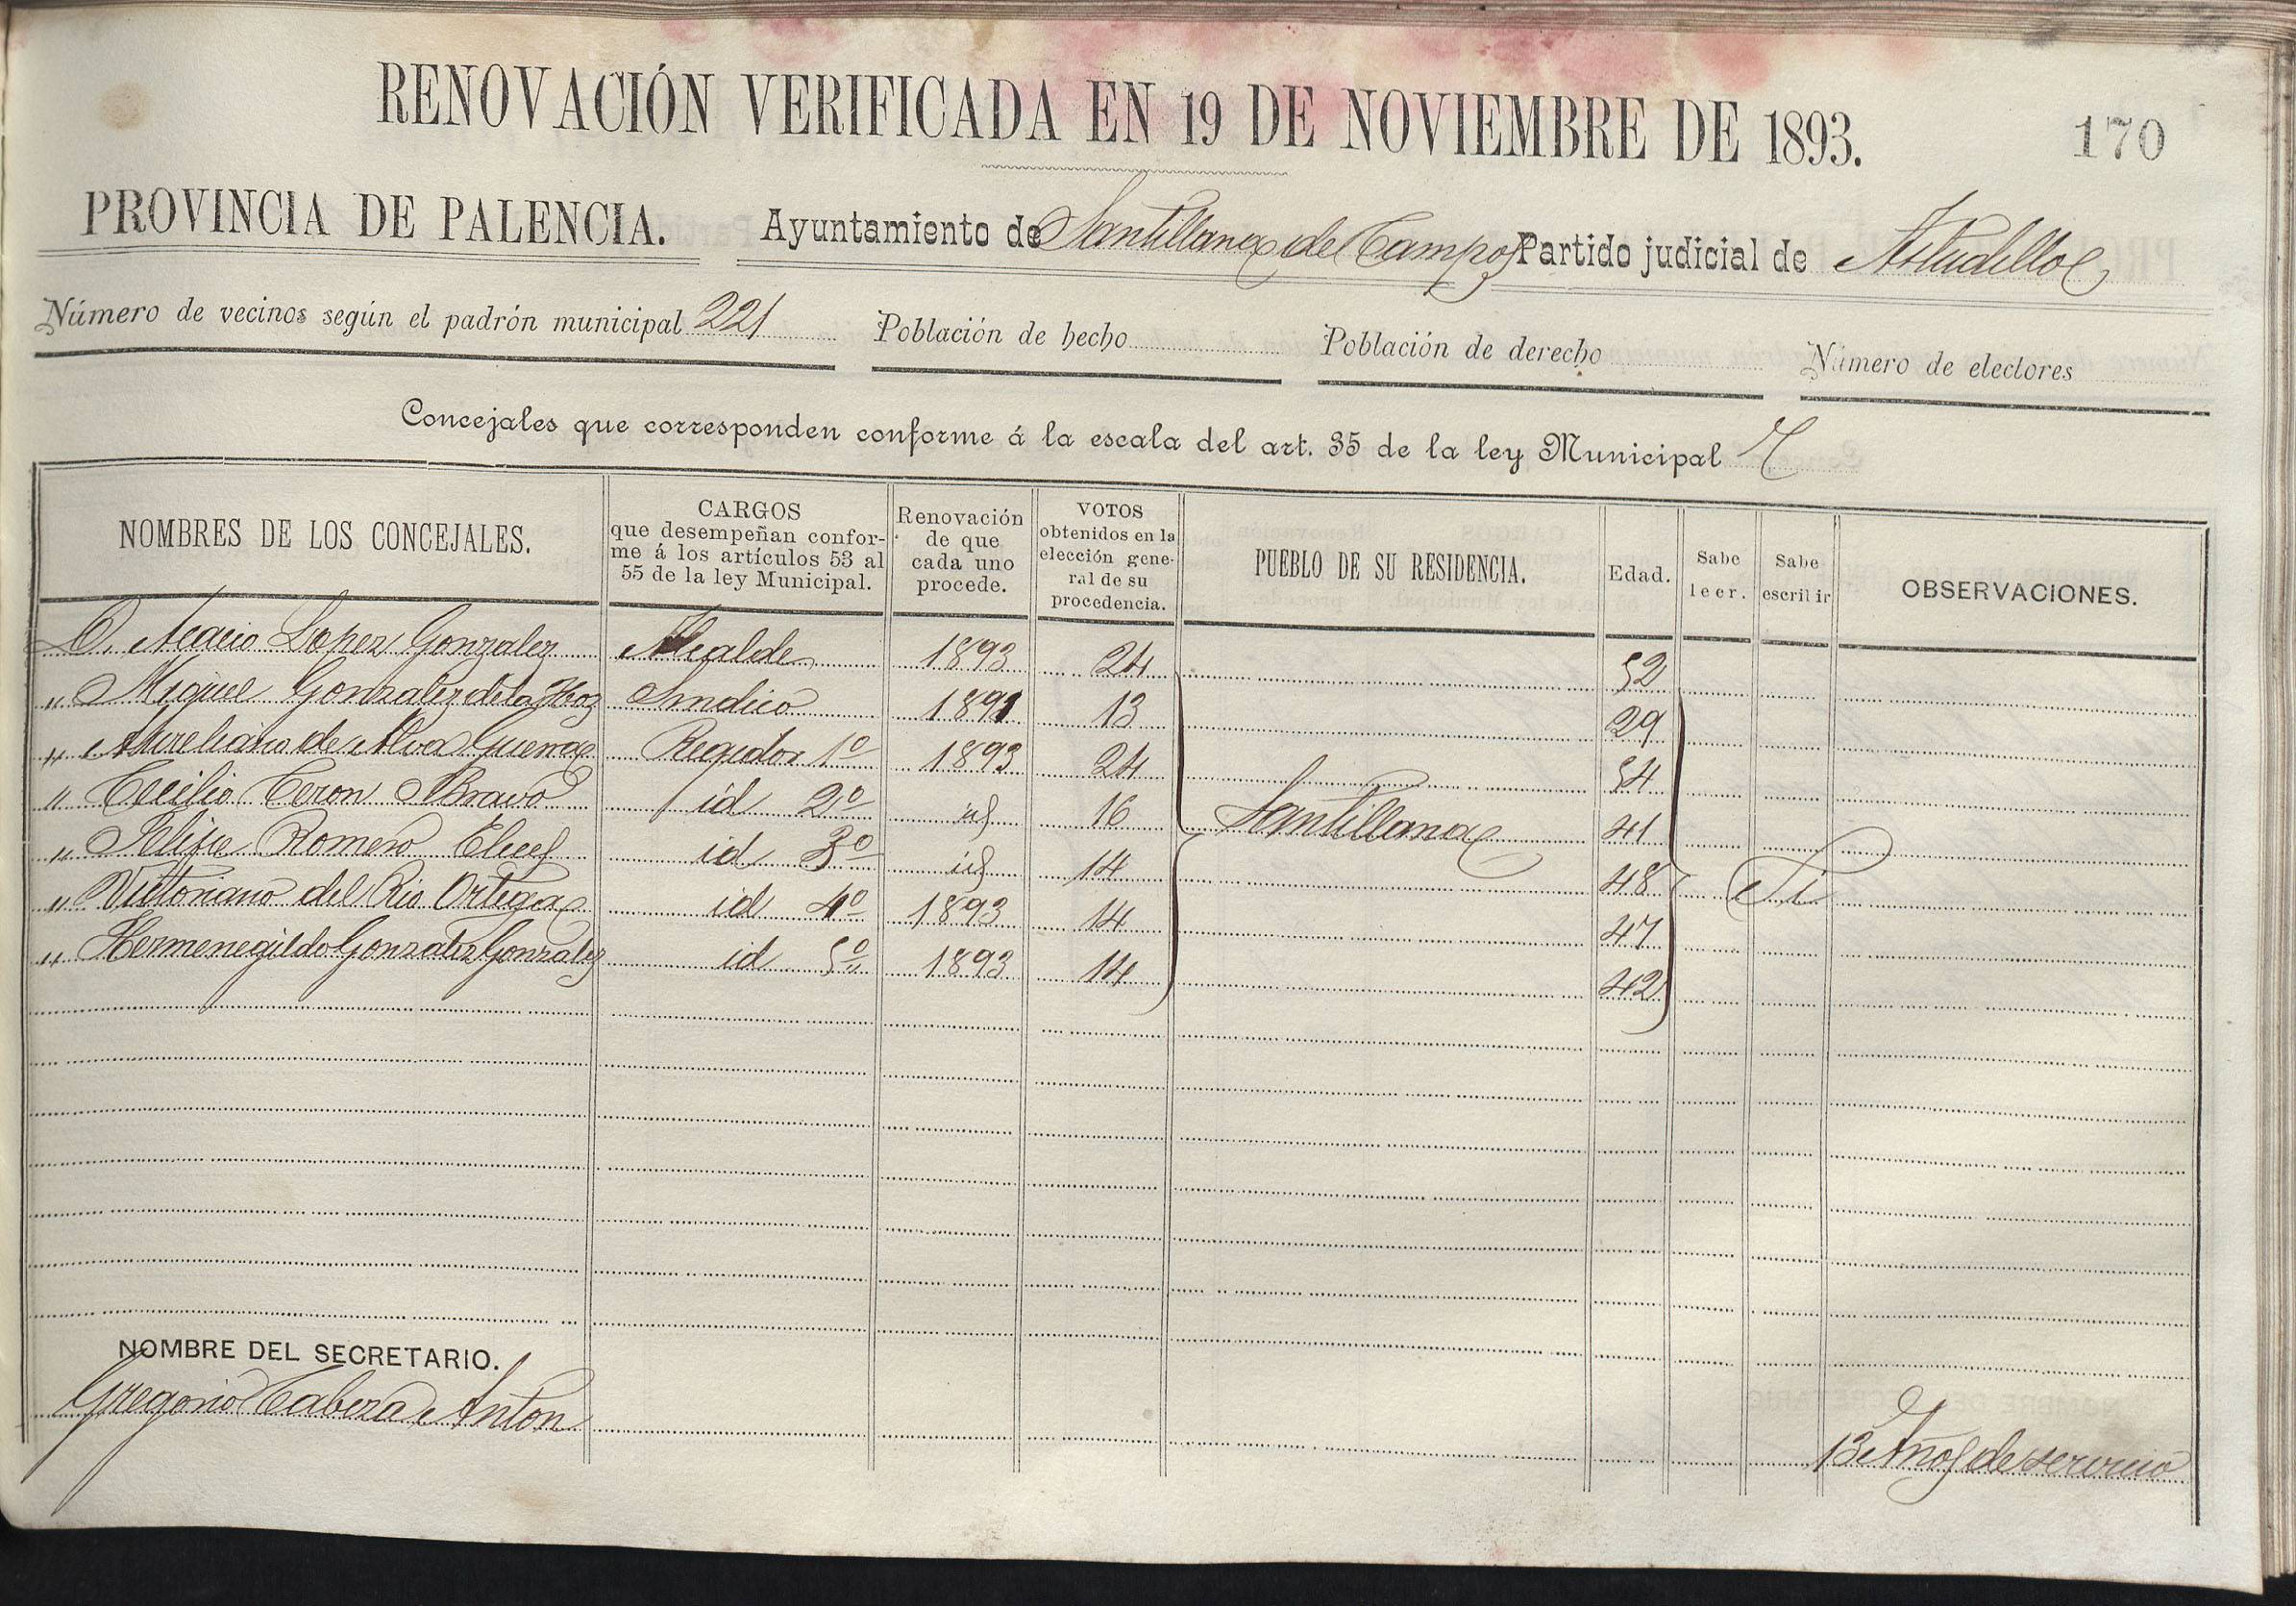 RENOVACIÓN VERIFICADA EN 19 DE NOVIEMBRE DE 1893. 170
PROVINCIA DE PALENCIA. Ayuntamiento de Santillana de Campos Partido judicial de Astudillo
Número de vecinos según el padrón municipal 221 Población de hecho Población de derecho Número de electores
Concejales que corresponden conforme á la escala del art. 35 de la ley Municipal 7
NOMBRES DE LOS CONCEJALES. CARGOS que desempeñan confor- me á los artículos 53 al 55 de la ley Municipal. Renovación de que cada uno procede. VOTOS obtenidos en la elección gene- ral de su procedencia. PUEBLO DE SU RESIDENCIA. Edad. Sabe leer. Sabe escribir OBSERVACIONES.
D. Acacio Lopez Gonzalez Alcalde 1893 24 52
" Miguel Gonzalez de la Hoz Sindico 1891 13 29
" Aureliano de Alva Guerra Regidor 1º 1893 24 54
" Cecilio Ceron Bravo id 2º id 16 Santillana 41
" Felipe Romero id 3º id 14 48 Si
" Victoriano del Rio Ortega id 4º 1893 14 47
" Hermenegildo Gonzalez Gonzalez id 5º 1893 14 42
NOMBRE DEL SECRETARIO.
Gregorio Cabeza Anton 13 Años de servicio